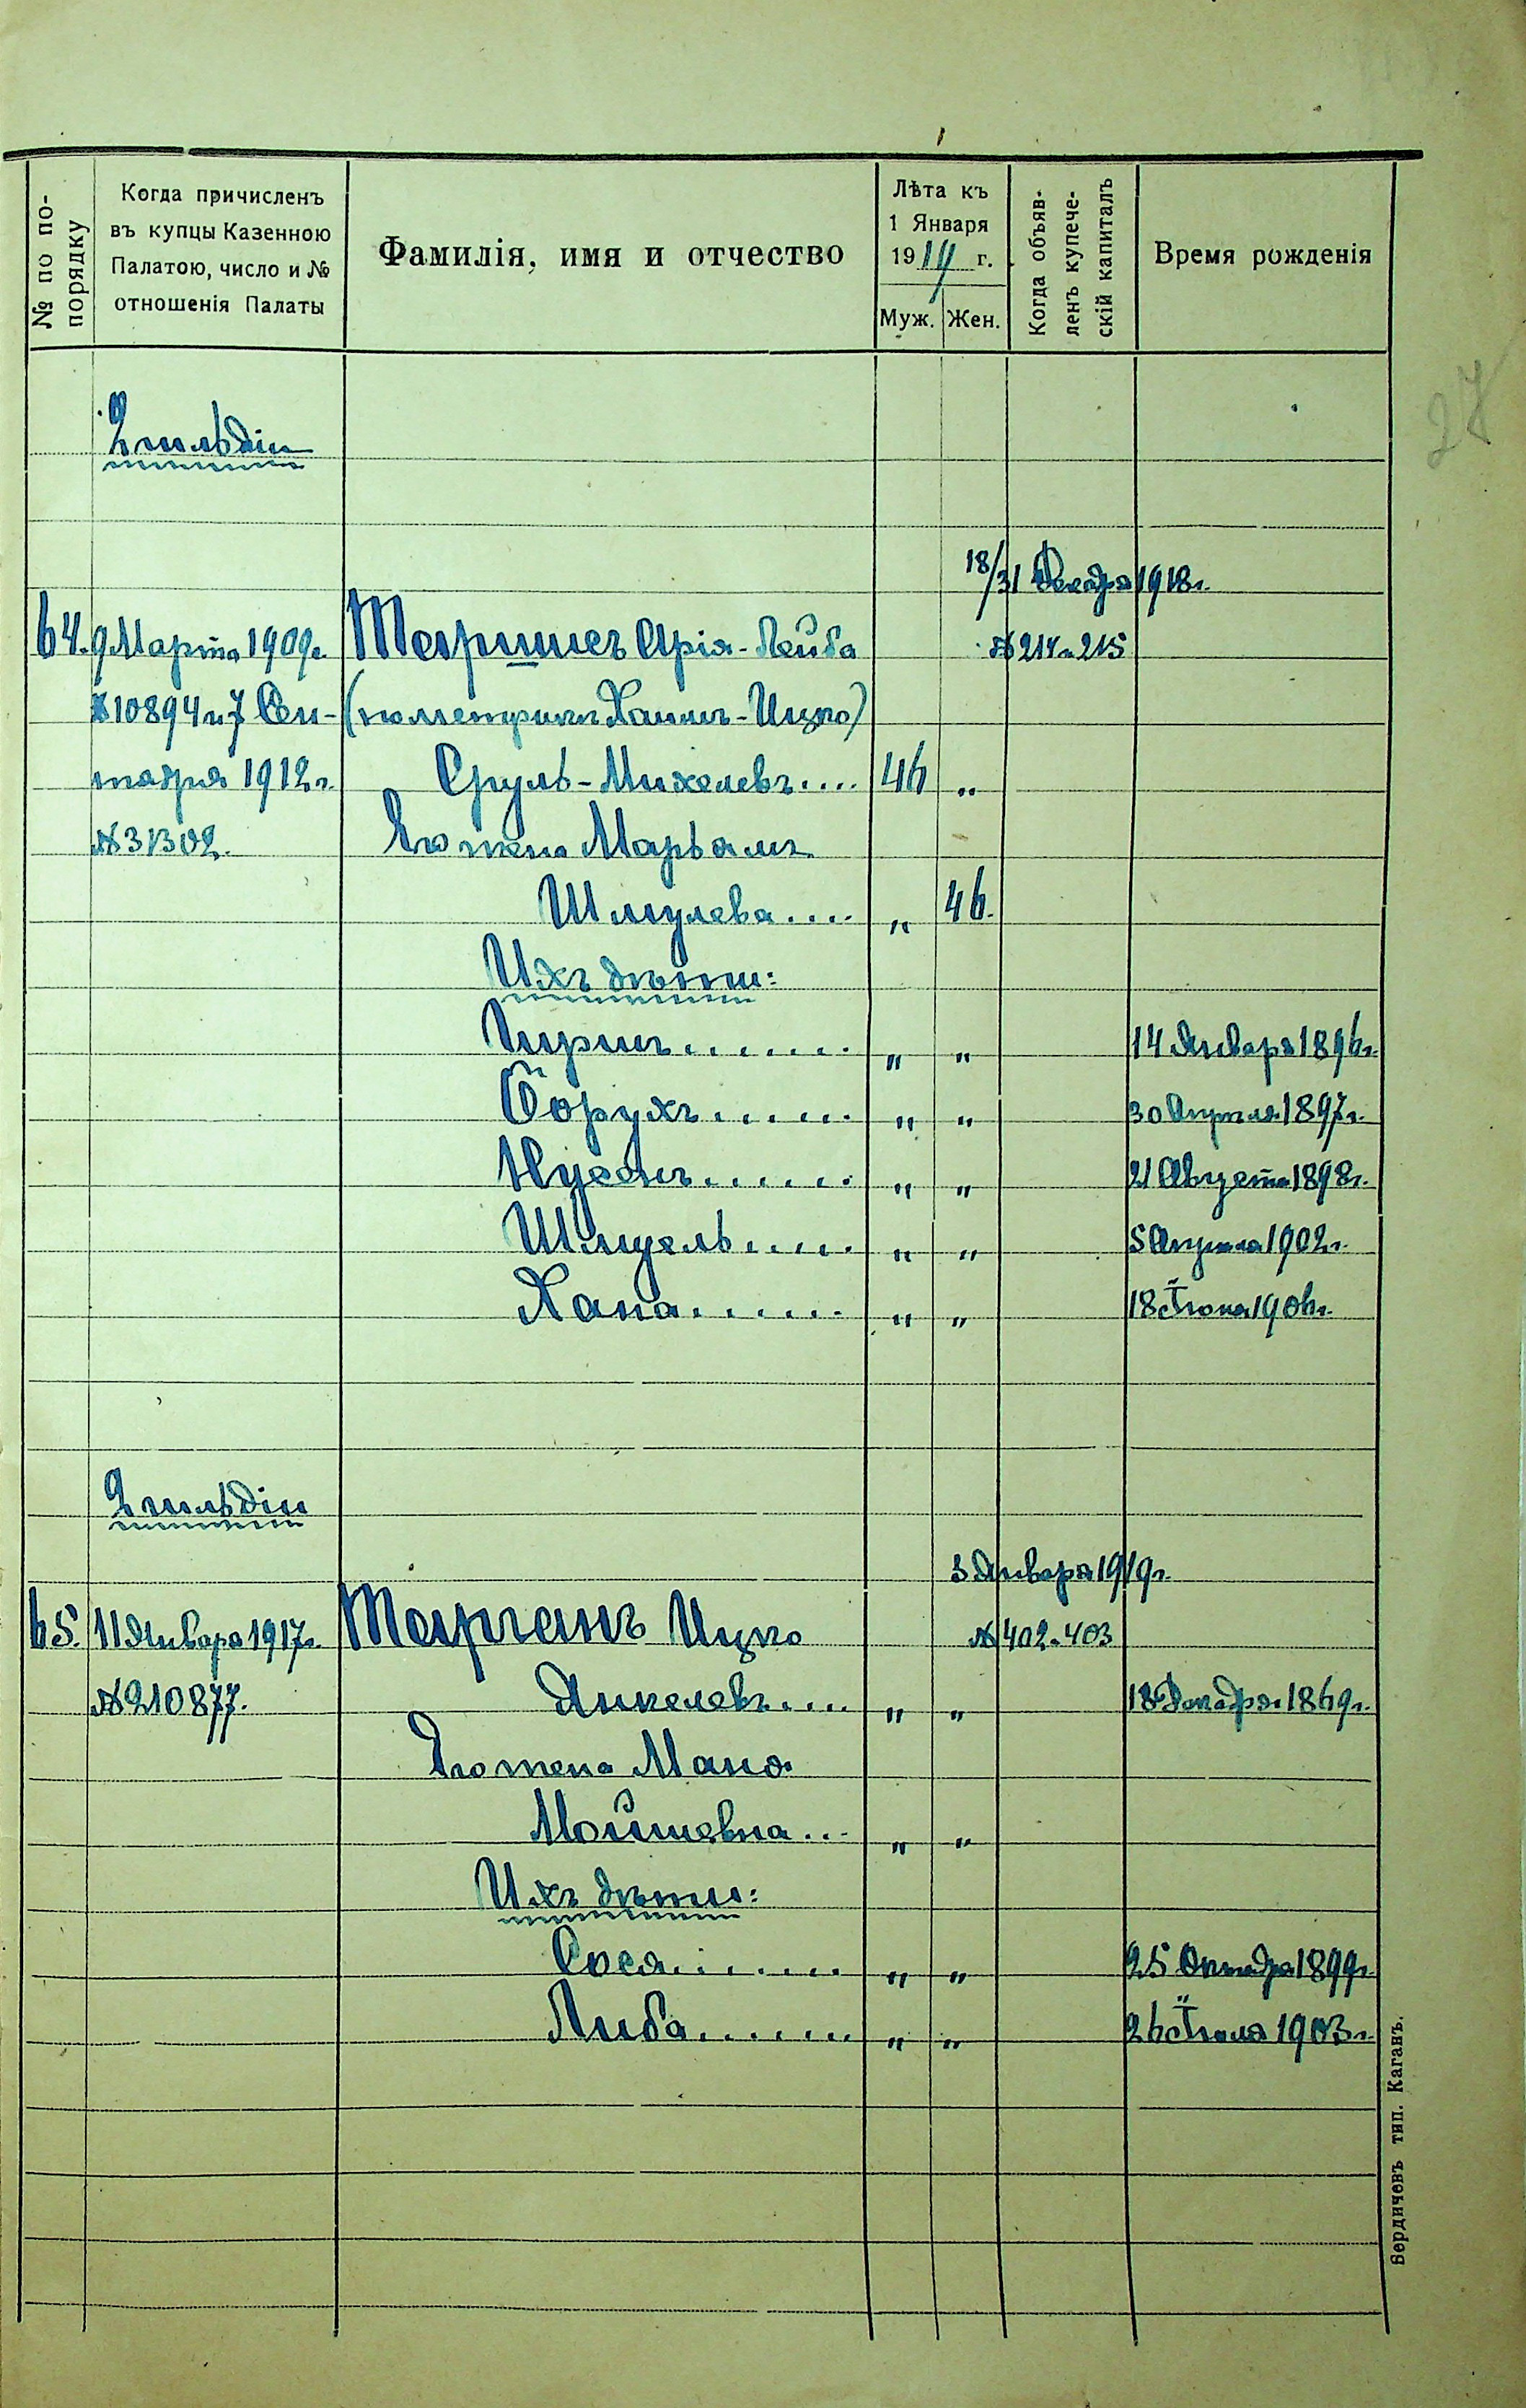 № по по-
порядку
Когда причисленъ
въ купцы Казенною
Палатою, число и №
отношенія Палаты
Фамилія, имя и отчество
Лѣта къ
1 Января
1919 г.
Муж. Жен.
Когда объяв-
ленъ купече-
скій капиталъ
Время рожденія
27
2 гильдіи
18/31 Декабря 1918 г.
64. 9 Марта 1909 г. Арія-Лейба № 214 и 215
№ 10894 и 7 Сен- Хаимъ-Ицко)
тября 1912 г. Сруль-Михелевъ.... 46 „
№ 31302. Его жена Марьямъ
Шмулева.... „ 46.
Ихъ дѣти:
....... „ „ 14 Января 1896 г.
Борухъ...... „ „ 30 Апрѣля 1897 г.
Нусенъ...... „ „ 21 Августа 1898 г.
Шмуель..... „ „ 5 Апрѣля 1902 г.
Хана...... „ „ 18 Іюня 1906 г.
2 гильдіи
3 Января 1919 г.
65. 11 Января 1917 г. Тарганъ Ицко № 402 и 403
№ 210877. Янкелевъ.... „ „ 18 Декабря 1869 г.
Его жена Маня
Мойшевна... „ „
Ихъ дѣти:
Сося....... „ „ 25 Октября 1899 г.
Либа....... „ „ 26 Іюля 1903 г.
Бердичевъ тип. Каганъ.